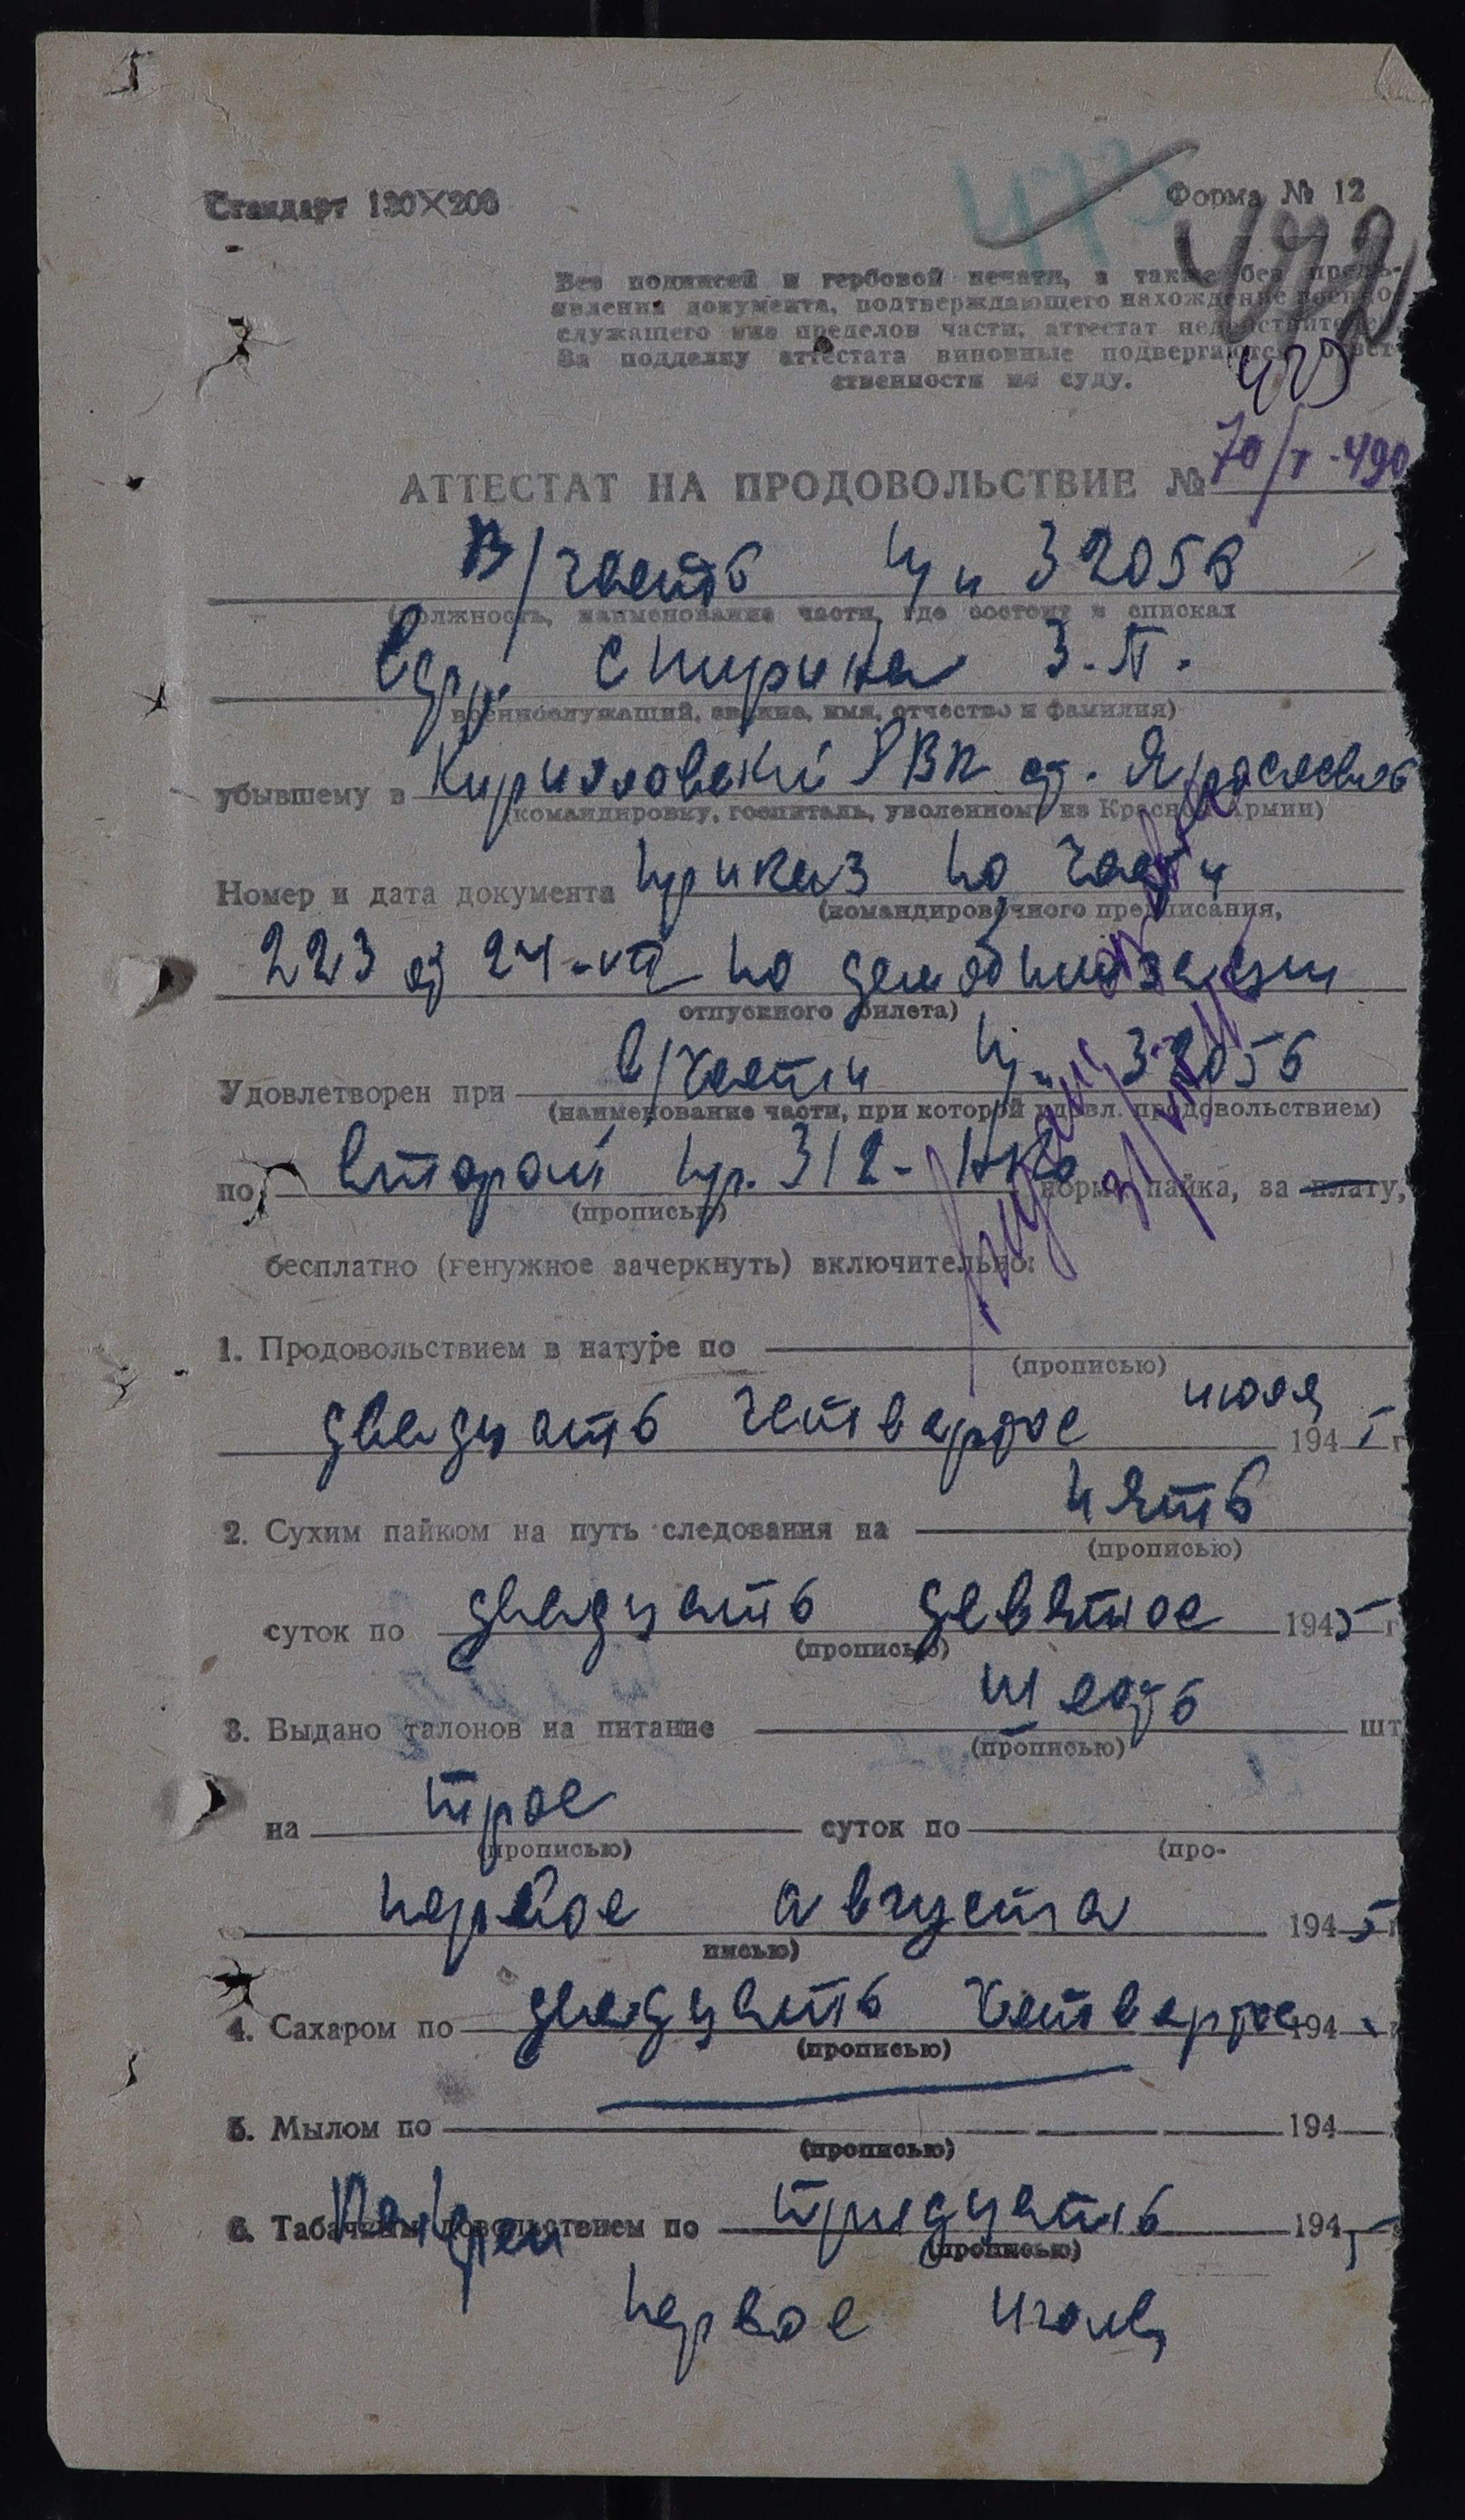 473
Стандарт 130×200 Форма № 12
472
Без подписей и гербовой печати, а также без предъ-
явления документа, подтверждающего нахождение военно-
служащего вне пределов части, аттестат недействителен
За подделку аттестата виновные подвергаются ответ-
ственности по суду.
АТТЕСТАТ НА ПРОДОВОЛЬСТВИЕ № 70/I-490
В/часть пп 32056
(должность, наименование части, где состоит в списках
Спирина З.П.
военнослужащий, звание, имя, отчество и фамилия)
убывшему в Кирилловский РВК ст. Ярославль
(командировку, госпиталь, уволенному из Красной Армии)
Номер и дата документа приказ по части
(командировочного предписания,
223 от 24-VII по демобилизации
отпускного билета)
Удовлетворен при в/части пп 32056
(наименование части, при которой удовл. продовольствием)
по второй пр. 312-НКО норме пайка, за плату,
(прописью)
бесплатно (ненужное зачеркнуть) включительно:
1. Продовольствием в натуре по
(прописью)
двадцать четвертое июля 1945 г
2. Сухим пайком на путь следования на пять
(прописью)
суток по двадцать девятое 1945 г
(прописью)
3. Выдано талонов на питание шесть шт
(прописью)
на трое суток по
(прописью) (про-
первое августа 1945 г
писью)
4. Сахаром по двадцать четвертое 194
(прописью)
5. Мылом по 194
(прописью)
6. Табачным довольствием по тридцать 1945
(прописью)
первое июля